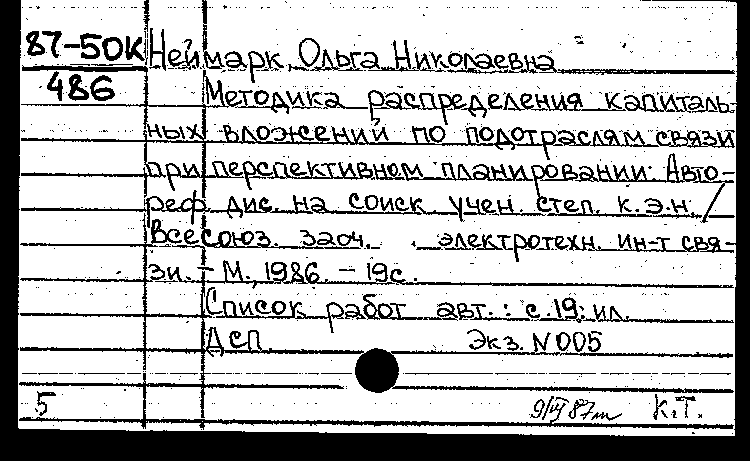 87-50К
486
Неймарк, Ольга Николаевна
Методика распределения капиталь-
ных вложений по подотраслям связи
при перспективном планировании: Авто-
реф. дис. на соиск. учен. степ. к.э.н. /
Всесоюз. заоч. электротехн. ин-т свя-
зи. - М., 1986. - 19с.
Список работ авт.: с.19: ил.
Дсп. Экз. N 005
5 К.Т.